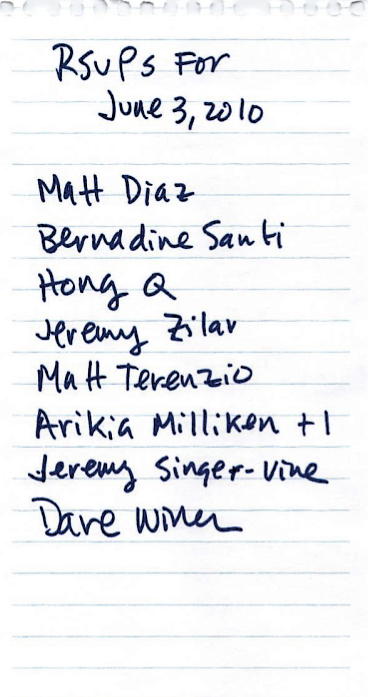 RSVPs For
June 3, 2010
Matt Diaz
Bernadine Santi
Hong Q
Jeremy Zilar
Matt Terenzio
Arikia Milliken +1
Jeremy Singer-Vine
Dave Winer